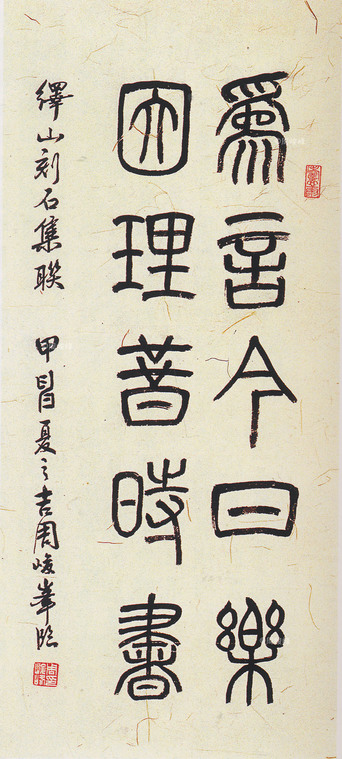 爲言今日樂
因理昔時書
繹山刻石集聯 甲夏之吉周峻峯臨